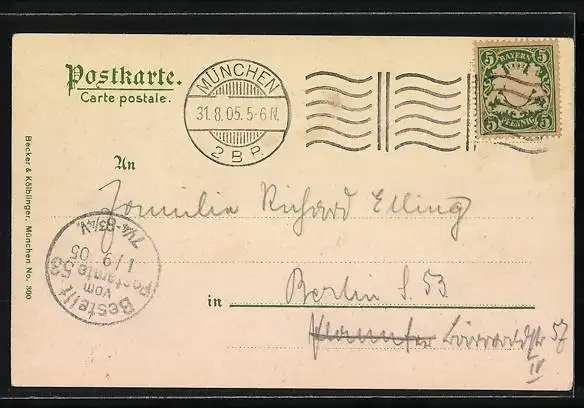 Postkarte.
Carte postale.
MÜNCHEN
31.8.05.5-6 N.
2 B P.
5 BAYERN 5
5 PFENNIG 5
An
Familie Richard Elling
in Berlin S. 53
57
IV
Bestellt
vom
Postamte 53
1/9 05
7¼-8¾ V.
Becker & Kölblinger, München No. 300